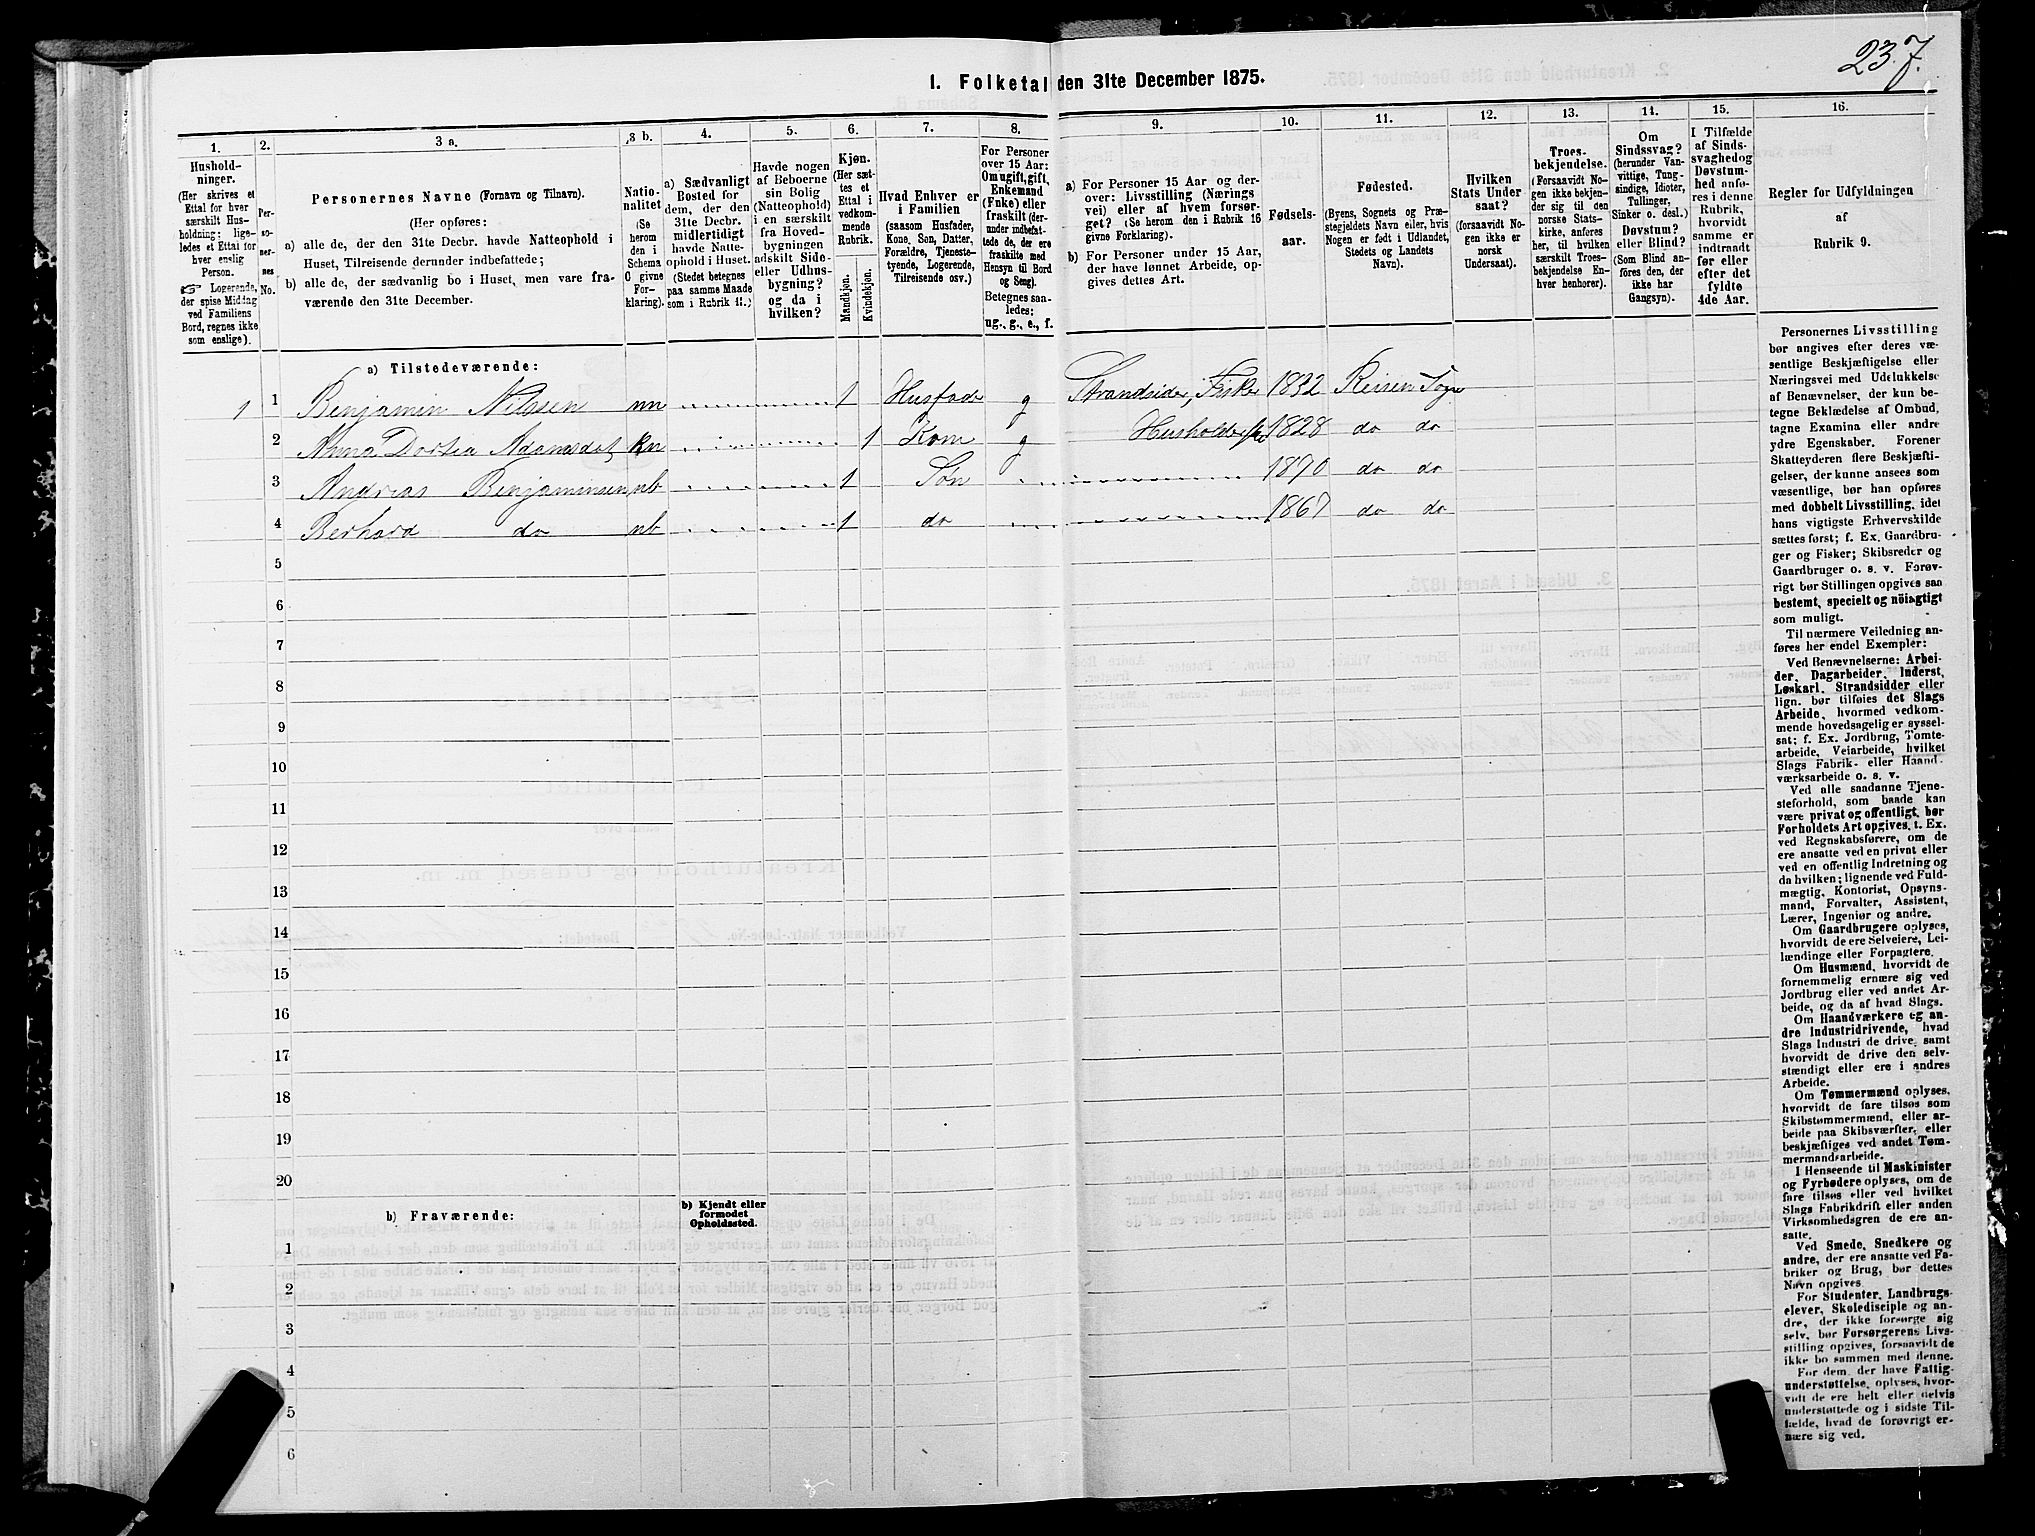 237.
1. Folketal den 31te December 1875.
1. 2. 3 a. 3 b. 4. 5. 6. 7. 8. 9. 10. 11. 12. 13. 14. 15. 16.
Hushold-
ninger.
(Her skrives et
Ettal for hver
særskilt Hus-
holdning; lige-
ledes et Ettal for
hver enslig
Person.
☞ Logerende,
der spise Middag
ved Familiens
Bord, regnes ikke
som enslige).
Per-
so-
ner-
nes
No.
Personernes Navne (Fornavn og Tilnavn).
(Her opføres:
a) alle de, der den 31te Decbr. havde Natteophold i
Huset, Tilreisende derunder indbefattede;
b) alle de, der sædvanlig bo i Huset, men vare fra-
værende den 31te December.
Natio-
nalitet
(Se
herom
den i
Schema
C givne
For-
klaring).
a) Sædvanligt
Bosted for
dem, der den
31te Decbr.
midlertidigt
havde Natte-
ophold i Huset.
(Stedet betegnes
paa samme Maade
som i Rubrik 11.)
Havde nogen
af Beboerne
sin Bolig
(Natteophold)
i en særskilt
fra Hoved-
bygningen
adskilt Side-
eller Udhus-
bygning?
og da i
hvilken?
Kjøn.
(Her sæt-
tes et
Ettal i
vedkom-
mende
Rubrik.
Mandkjøn.
Kvindekjøn.
Hvad Enhver er
i Familien
(saasom Husfader,
Kone, Søn, Datter,
Forældre, Tjeneste-
tyende, Logerende,
Tilreisende osv.)
For Personer
over 15 Aar:
Om ugift, gift,
Enkemand
(Enke) eller
fraskilt (der-
under indbefat-
tede de, der ere
fraskilte med
Hensyn til Bord
og Seng).
Betegnes saa-
ledes:
ug., g., e., f.
a) For Personer 15 Aar og der-
over: Livsstilling (Nærings-
vei) eller af hvem forsør-
get? (Se herom den i Rubrik 16
givne Forklaring).
b) For Personer under 15 Aar,
der have lønnet Arbeide, op-
gives dettes Art.
Fødsels-
aar.
Fødested.
(Byens, Sognets og Præ-
stegjeldets Navn eller, hvis
Nogen er født i Udlandet,
Stedets og Landets
Navn).
Hvilken
Stats Under-
saat?
(forsaavidt No-
gen ikke er
norsk
Undersaat).
Troes-
bekjendelse.
(Forsaavidt No-
gen ikke bekjen-
der sig til den
norske Stats-
kirke, anføres
her, til hvilken
særskilt Troes-
bekjendelse En-
hver henhører).
Om
Sindssvag?
(herunder Van-
vittige, Tung-
sindige, Idioter,
Tullinger,
Sinker o. desl.)
Døvstum?
eller Blind?
(Som Blind an-
føres den, der
ikke har
Gangsyn).
I Tilfælde
af Sinds-
svaghed og
Døvstum-
hed anfø-
res i denne
Rubrik,
hvorvidt
samme er
indtraadt
før eller
efter det
fyldte
4de Aar.
Regler for Udfyldningen
af
Rubrik 9.
a) Tilstedeværende:
1 1 Benjamin Nilssen nn 1 Husfader g Strandsider, Fisker 1832 Reisen Sogn
2 Anna Dortea Adamsdat kn 1 Kone g 1828 do do
3 Andreas Benjaminsen nb 1 Søn 1870 do do
4 Berhard do nb 1 do 1867 do do
5
6
7
8
9
10
11
12
13
14
15
16
17
18
19
20
b) Fraværende:
b) Kjendt eller
formodet
Opholdssted.
1
2
3
4
5
6
Personernes Livsstilling
bør angives efter deres væ-
sentlige Beskjæftigelse eller
Næringsvei med Udelukkelse
af Benævnelser, der kun be-
tegne Beklædelse af Ombud,
tagne Examina eller andre
ydre Egenskaber. Forener
Skatteyderen flere Beskjæfti-
gelser, der kunne ansees som
væsentlige, bør han opføres
med dobbelt Livsstilling, idet
hans vigtigste Erhvervskilde
sættes først; f. Ex. Gaardbru-
ger og Fisker; Skibsreder og
Gaardbruger o. s. v. Forøv-
rigt bør Stillingen opgives saa
bestemt, specielt og nöiagtigt
som muligt.
Til nærmere Veiledning an-
føres her endel Exempler:
Ved Benævnelserne: Arbei-
der, Dagarbeider, Inderst,
Løskarl, Strandsidder eller
lign. bør tilføies det Slags
Arbeide, hvormed vedkom-
mende hovedsagelig er syssel-
sat; f. Ex. Jordbrug, Tomte-
arbeide, Veiarbeide, hvilket
Slags Fabrik- eller Haand-
værksarbeide o. s. v.
Ved alle saadanne Tjene-
steforhold, som baade kan
være privat og offentligt, bør
Forholdets Art opgives, t. Ex.
ved Regnskabsførere, om de
ere ansatte ved en privat eller
ved en offentlig Indretning og
da hvilken; lignende ved Fuld-
mægtig, Kontorist, Opsyns-
mand, Forvalter, Assistent,
Lærer, Ingeniør og andre.
Om Gaardbrugere oplyses,
hvorvidt de ere Selveiere, Lei-
lændinge eller Forpagtere.
Om Husmænd, hvorvidt de
fornemmelig ernære sig ved
Jordbrug eller ved andet Ar-
beide, og da af hvad Slags.
Om Haandværkere og an-
dre Industridrivende, hvad
Slags Industri de drive, samt
hvorvidt de drive den selv-
stændigt eller ere i andres
Arbeide.
Om Tømmermænd oplyses,
hvorvidt de fare tilsøs som
Skibstømmermænd, eller ar-
beide paa Skibsværfter, eller
beskjæftiges ved andet Tøm-
mermandsarbeide.
I Henseende til Maskinister
og Fyrbødere oplyses, om de
fare tilsøs eller ved hvilket
Slags Fabrikdrift eller anden
Virksomhedsgren de ere an-
satte.
Ved Smede, Snedkere og
andre, der ere ansatte ved Fa-
briker og Brug, bør dettes
Navn opgives.
For Studenter, Landbrugs-
elever, Skoledisciple og an-
dre, der ikke forsørge sig
selv, bør Forsørgerens Livs-
stilling opgives, forsaavidt de
ikke bo sammen med denne.
For dem, der have Fattig-
understøttelse, oplyses, hvor-
vidt de ere helt eller delvis
understøttede og i sidste Til-
fælde, hvad de forøvrigt er-
nære sig ved.